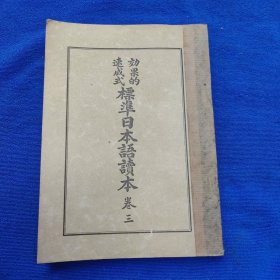 効果的
速成式
標準日本語讀本 巻三